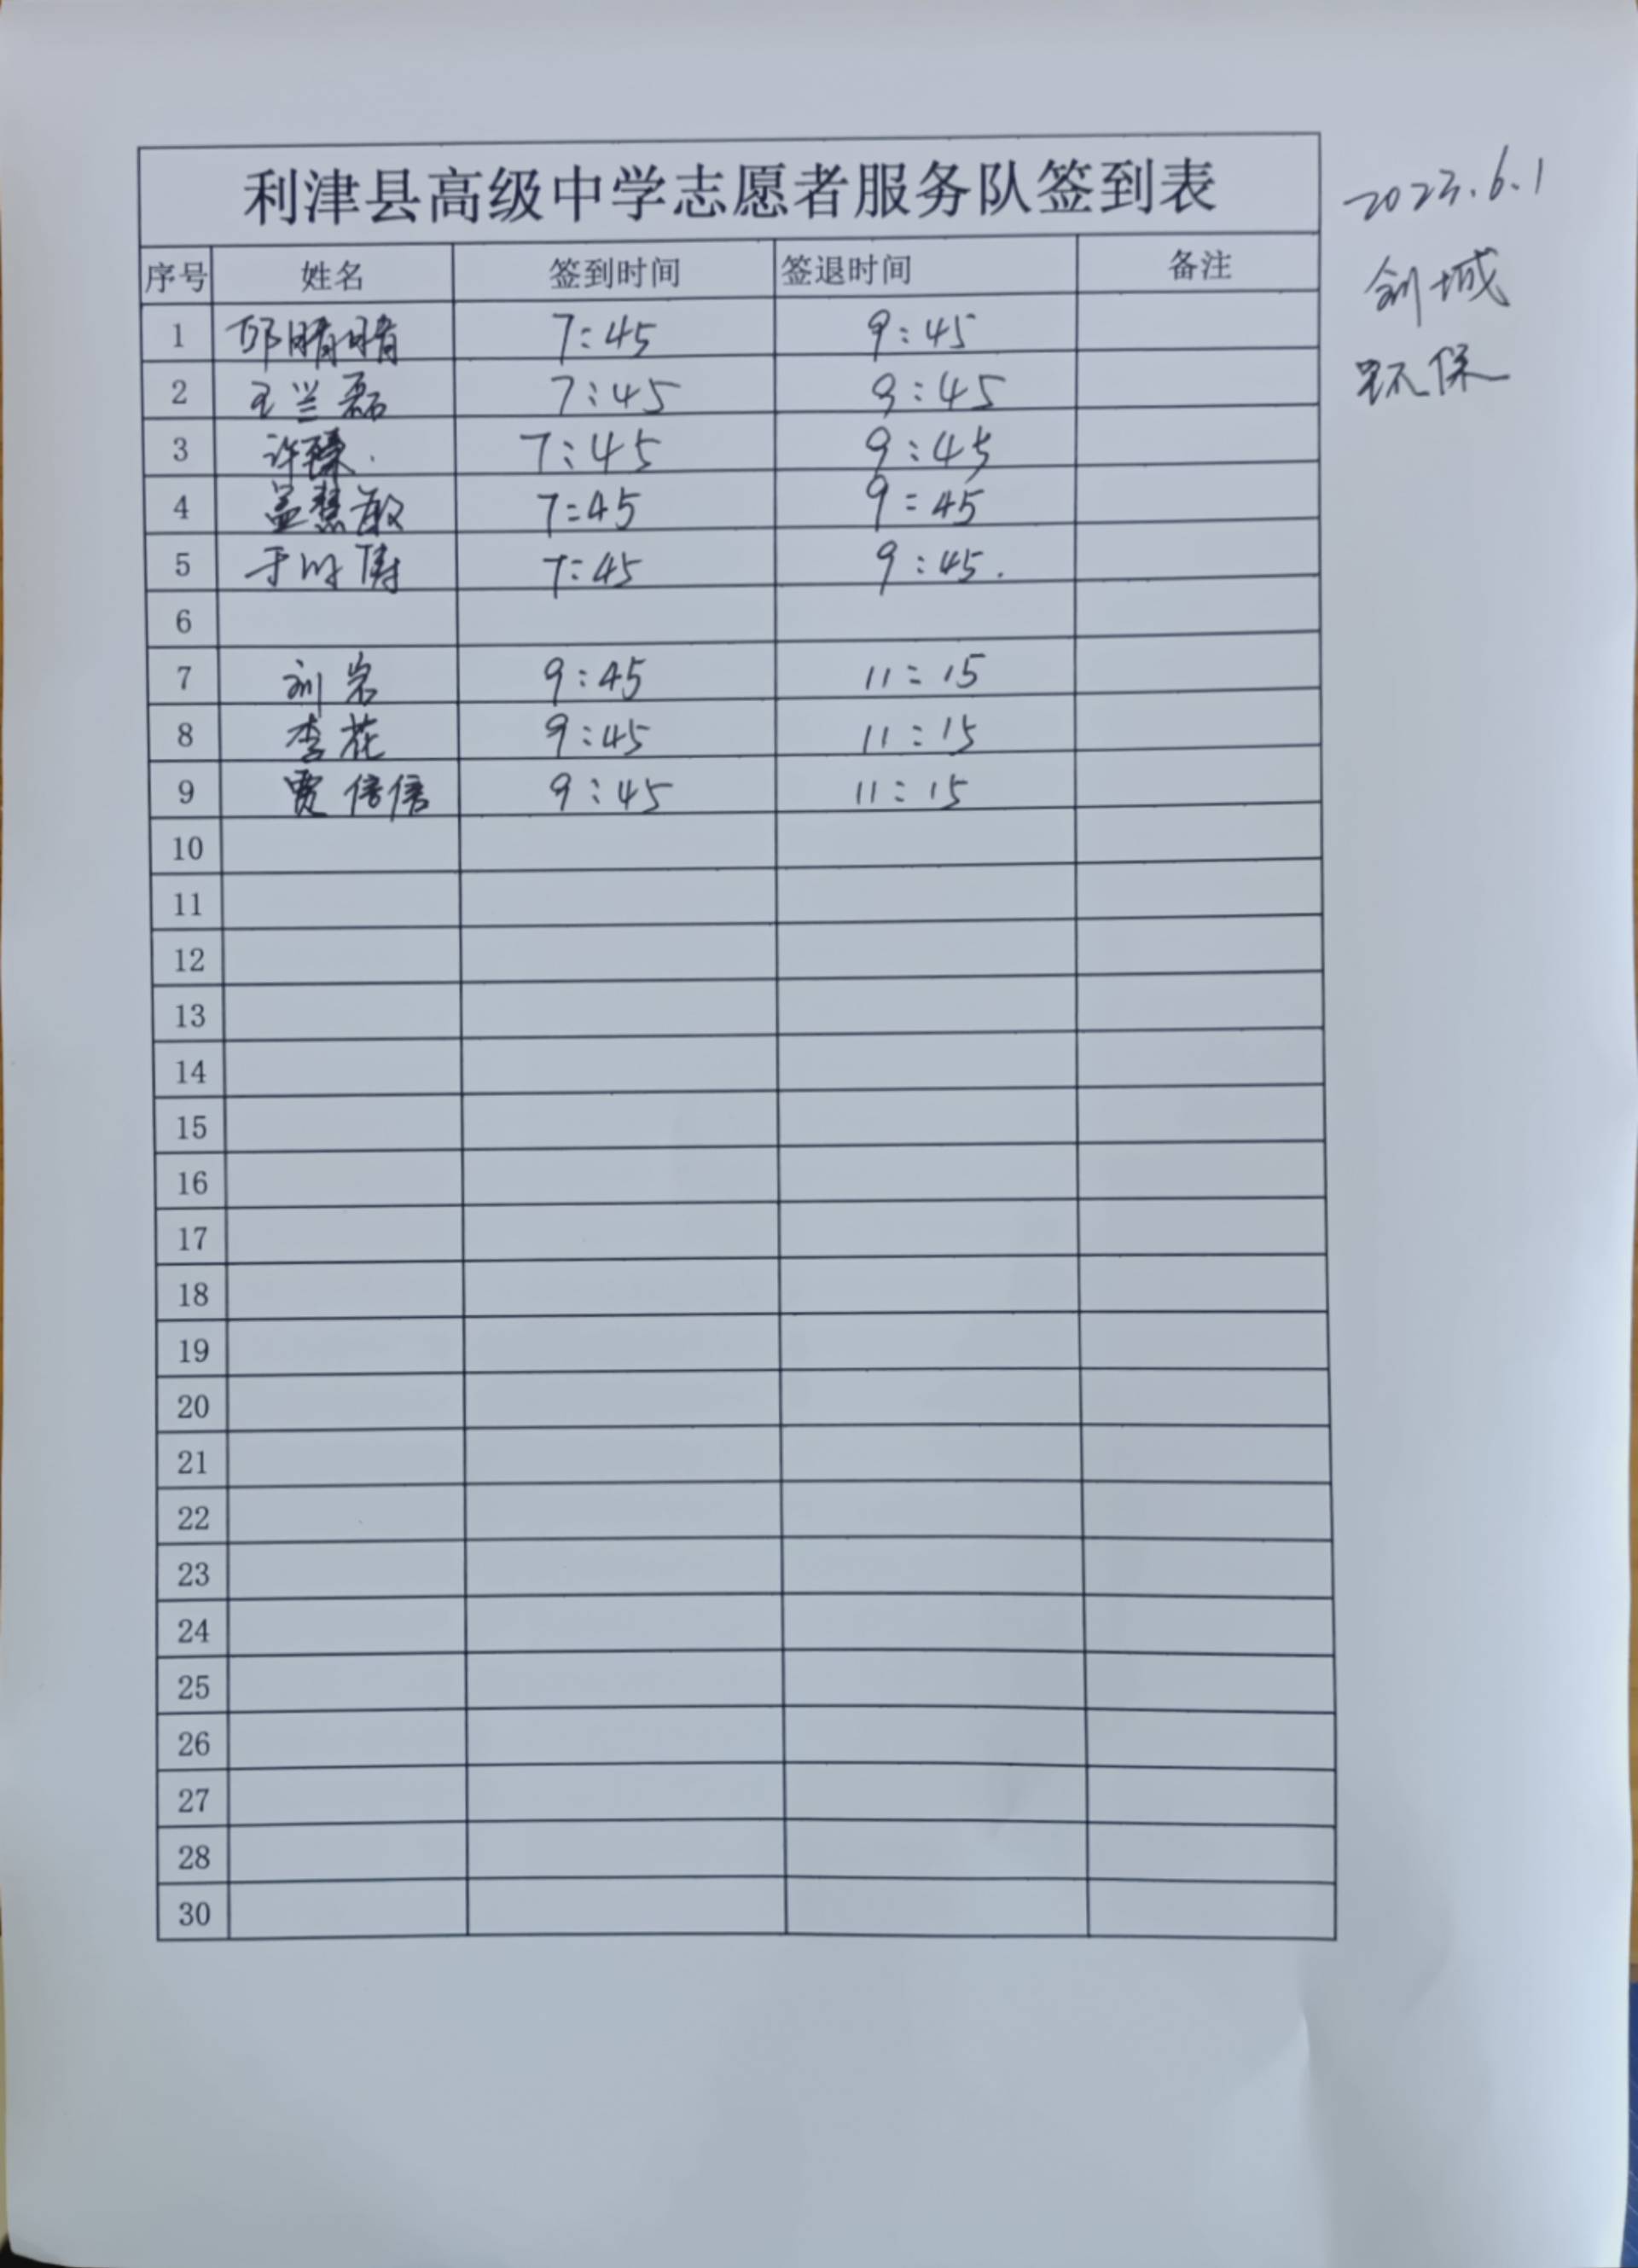 利津县高级中学志愿者服务队签到表
2023.6.1
创城
环保
序号 姓名 签到时间 签退时间 备注
1 邱晴晴 7:45 9:45
2 王兰磊 7:45 9:45
3 许臻 7:45 9:45
4 盖慧敏 7:45 9:45
5 于 涛 7:45 9:45.
6
7 刘岩 9:45 11:15
8 李花 9:45 11:15
9 贾倍倍 9:45 11:15
10
11
12
13
14
15
16
17
18
19
20
21
22
23
24
25
26
27
28
30